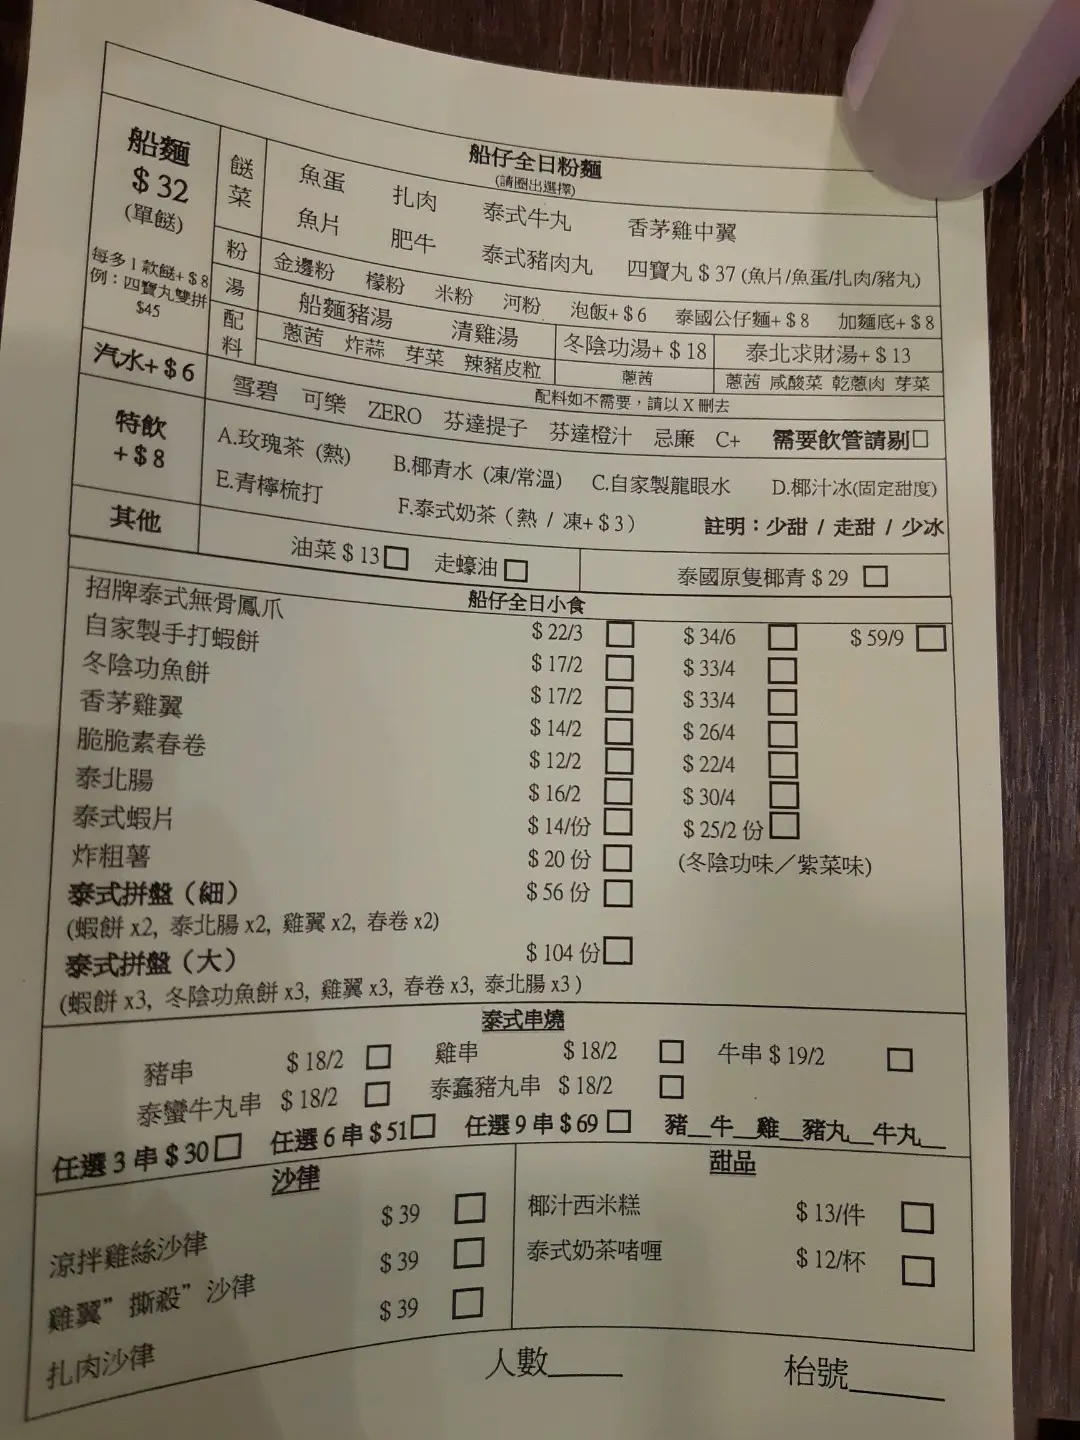 船仔全日粉麵
(請圈出選擇)
船麵
$32
(單餸)
每多1款餸+$8
例：四寶丸雙拼
$45
餸菜
魚蛋 扎肉 泰式牛丸 香茅雞中翼
魚片 肥牛 泰式豬肉丸 四寶丸 $37 (魚片/魚蛋/扎肉/豬丸)
粉
金邊粉 檬粉 米粉 河粉 泡飯+$6 泰國公仔麵+$8 加麵底+$8
湯
船麵豬湯 清雞湯 冬陰功湯+$18 泰北求財湯+$13
配料
蔥茜 炸蒜 芽菜 辣豬皮粒 蔥茜 蔥茜 咸酸菜 乾蔥肉 芽菜
配料如不需要，請以X刪去
汽水+$6
雪碧 可樂 ZERO 芬達提子 芬達橙汁 忌廉 C+ 需要飲管請剔□
特飲
+$8
A.玫瑰茶 (熱) B.椰青水 (凍/常溫) C.自家製龍眼水 D.椰汁冰(固定甜度)
E.青檸梳打 F.泰式奶茶（熱 / 凍+$3） 註明：少甜 / 走甜 / 少冰
其他
油菜 $13□ 走蠔油□ 泰國原隻椰青 $29 □
船仔全日小食
招牌泰式無骨鳳爪 $22/3 □ $34/6 □ $59/9 □
自家製手打蝦餅 $17/2 □ $33/4 □
冬陰功魚餅 $17/2 □ $33/4 □
香茅雞翼 $14/2 □ $26/4 □
脆脆素春卷 $12/2 □ $22/4 □
泰北腸 $16/2 □ $30/4 □
泰式蝦片 $14/份 □ $25/2 份□
炸粗薯 $20 份 □ (冬陰功味／紫菜味)
泰式拼盤（細） $56 份 □
(蝦餅 x2, 泰北腸 x2, 雞翼 x2, 春卷 x2)
泰式拼盤（大） $104 份□
(蝦餅 x3, 冬陰功魚餅 x3, 雞翼 x3, 春卷 x3, 泰北腸 x3 )
泰式串燒
豬串 $18/2 □ 雞串 $18/2 □ 牛串 $19/2 □
泰蠻牛丸串 $18/2 □ 泰蠢豬丸串 $18/2 □
任選 3 串 $30□ 任選 6 串 $51□ 任選 9 串 $69 □ 豬__牛__雞__豬丸__牛丸__
沙律
涼拌雞絲沙律 $39 □
雞翼”撕殺”沙律 $39 □
扎肉沙律 $39 □
甜品
椰汁西米糕 $13/件 □
泰式奶茶啫喱 $12/杯 □
人數_____ 枱號______